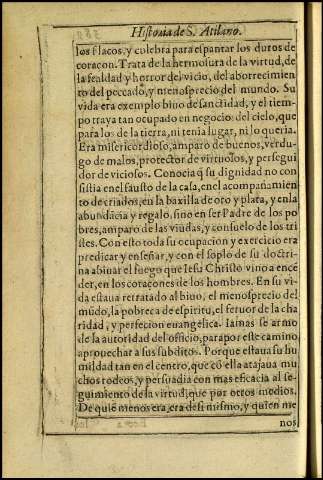 Historia de S. Atilano.
los flacos, y culebra para espantar los duros de
coraçon. Trata de la hermosura de la virtud, de
la fealdad y horror del vicio, del aborrecimien
to del peccado, y menosprecio del mundo. Su
vida era exemplo biuo de sanctidad, y el tiem-
po traya tan ocupado en negocios del cielo, que
para los de la tierra, ni tenia lugar, ni lo queria.
Era misericordioso, amparo de buenos, verdu-
go de malos, protector de virtuosos, y persegui
dor de viciosos. Conocia q̃ su dignidad no con
sistia en el fausto de la casa, en el acompañamien
to de criados, en la baxilla de oro y plata, y en la
abundãcia y regalo, sino en ser Padre de los po
bres, amparo de las viudas, y consuelo de los tri
stes. Con esto toda su ocupacion y exercicio era
predicar y enseñar, y con el soplo de su doctri-
na abiuar el fuego que Iesu Christo vino a encẽ
der, en los coraçones de los hombres. En su vi-
da estaua retratado al biuo, el menosprecio del
mũdo, la pobreça de espiritu, el feruor de la cha
ridad, y perfecion euangelica. Iamas se armo
de la autoridad del officio, para por este camino,
aprouechar a sus subditos. Porque estaua su hu
mildad tan en el centro, que cõ ella atajaua mu
chos rodeos, y persuadia con mas eficacia al se-
guimiento de la virtud, que por otros medios.
De quiẽ menos era, era de si mismo, y quien me
nos